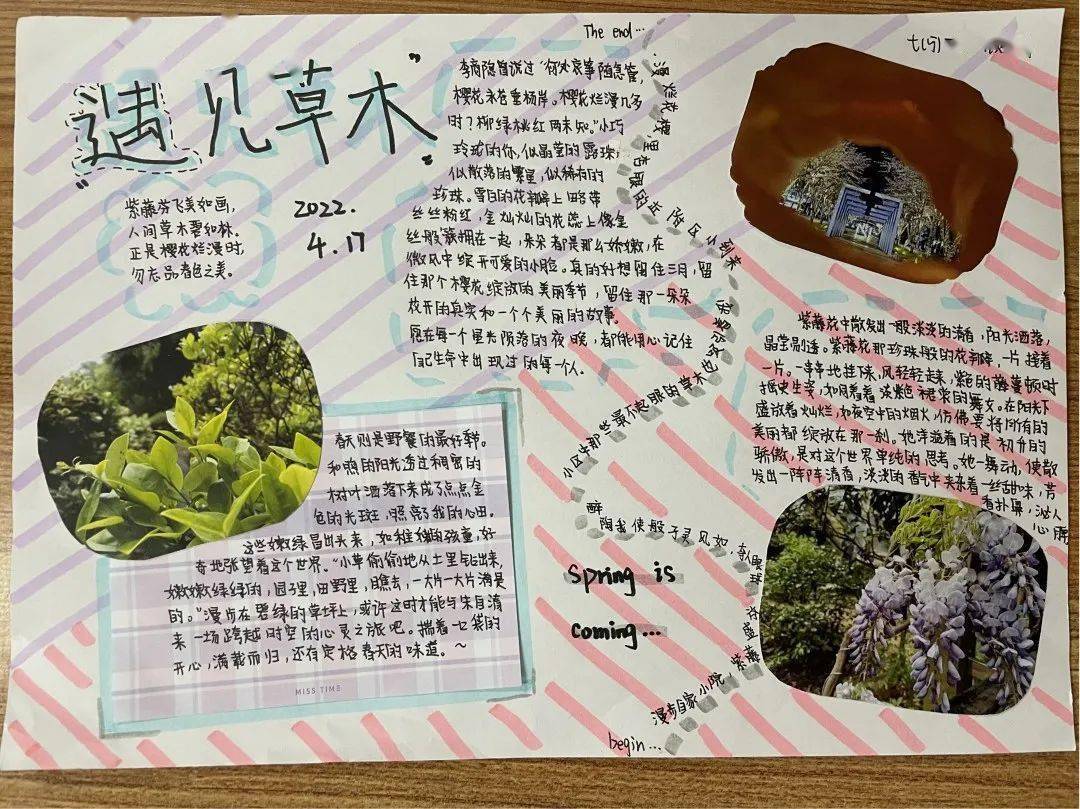 "遇见草木"
紫藤芬飞美如画，
人间草木霎如林。
正是樱花烂漫时，
勿忘品春色之美。
2022.
4.17
The end…
李商隐曾说过"何处哀筝随急管，
樱花永巷垂杨岸。樱花烂漫几多
时？柳绿桃红两未知。"小巧
玲珑的你，似晶莹的露珠；
似散落的繁星，似稀有的
珍珠。雪白的花瓣上略带
丝丝粉红，金灿灿的花蕊上像金
丝般簇拥在一起，朵朵都是那么娇嫩，在
微风中绽开可爱的小脸。真的好想留住三月，留
住那个樱花绽放的美丽季节，留住那一朵朵
花开的真实和一个个美丽的故事。
愿在每一个星光陨落的夜晚，都能用心记住
自己生命中出现过的每一个人。
七(9)
紫藤花中散发出一股淡淡的清香，阳光洒落，
晶莹剔透。紫藤花那珍珠般的花瓣，一片挨着
一片。一串串地挂下来，风轻轻走来，紫色的薄蔓顿时
摇曳生姿，如同着着淡紫色裙裳的舞女。在阳光下
盛放着灿烂，如夜空中的烟火，仿佛要将所有的
美丽都绽放在那一刹。她洋溢着的是初升的
骄傲，是对这个世界单纯的思考。她一舞动，便散
发出一阵阵清香，淡淡的香气中夹杂着一丝甜味，芳
香扑鼻，沁人
心脾
春天则是野餐的最好季节。
和煦的阳光透过稠密的
树叶洒落下来成了点点金
色的光斑，照亮了我的心田。
这些嫩绿冒出头来，如稚嫩的孩童，好
奇地张望着这个世界。"小草偷偷地从土里钻出来，
嫩嫩绿绿的，园子里，田野里，瞧去，一大片一大片满是
的。"漫步在碧绿的草坪上，或许这时才能与朱自清
来一场跨越时空的心灵之旅吧。揣着一袋的
开心，满载而归，还有定格春天的味道。～
MISS TIME
Spring is
coming…
begin…
漫步自家小院，紫藤
小区中那些最不起眼的草木也